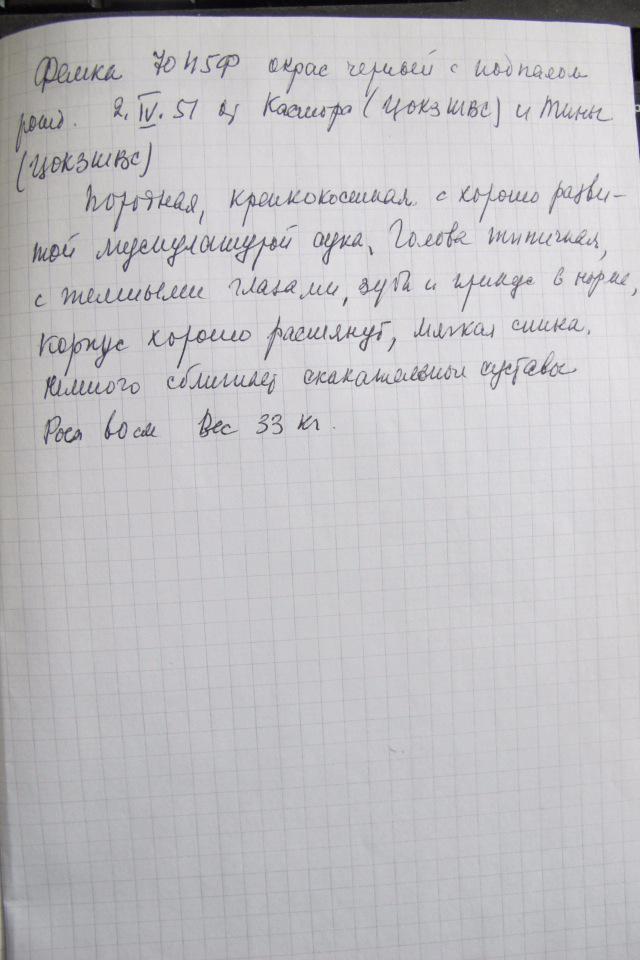 Фемка 7045Ф окрас черный с подпалом
рожд. 2.IV.51 от Кастора (ЦОКЗШВС) и Тины
(ЦОКЗШВС)
Породная, крепкокостная с хорошо разви-
той мускулатурой сука, Голова типичная,
с темными глазами, зубы и прикус в норме,
Корпус хорошо растянут, мягкая спина.
Немного сближает скакательные суставы
Рост 60 см Вес 33 кг.